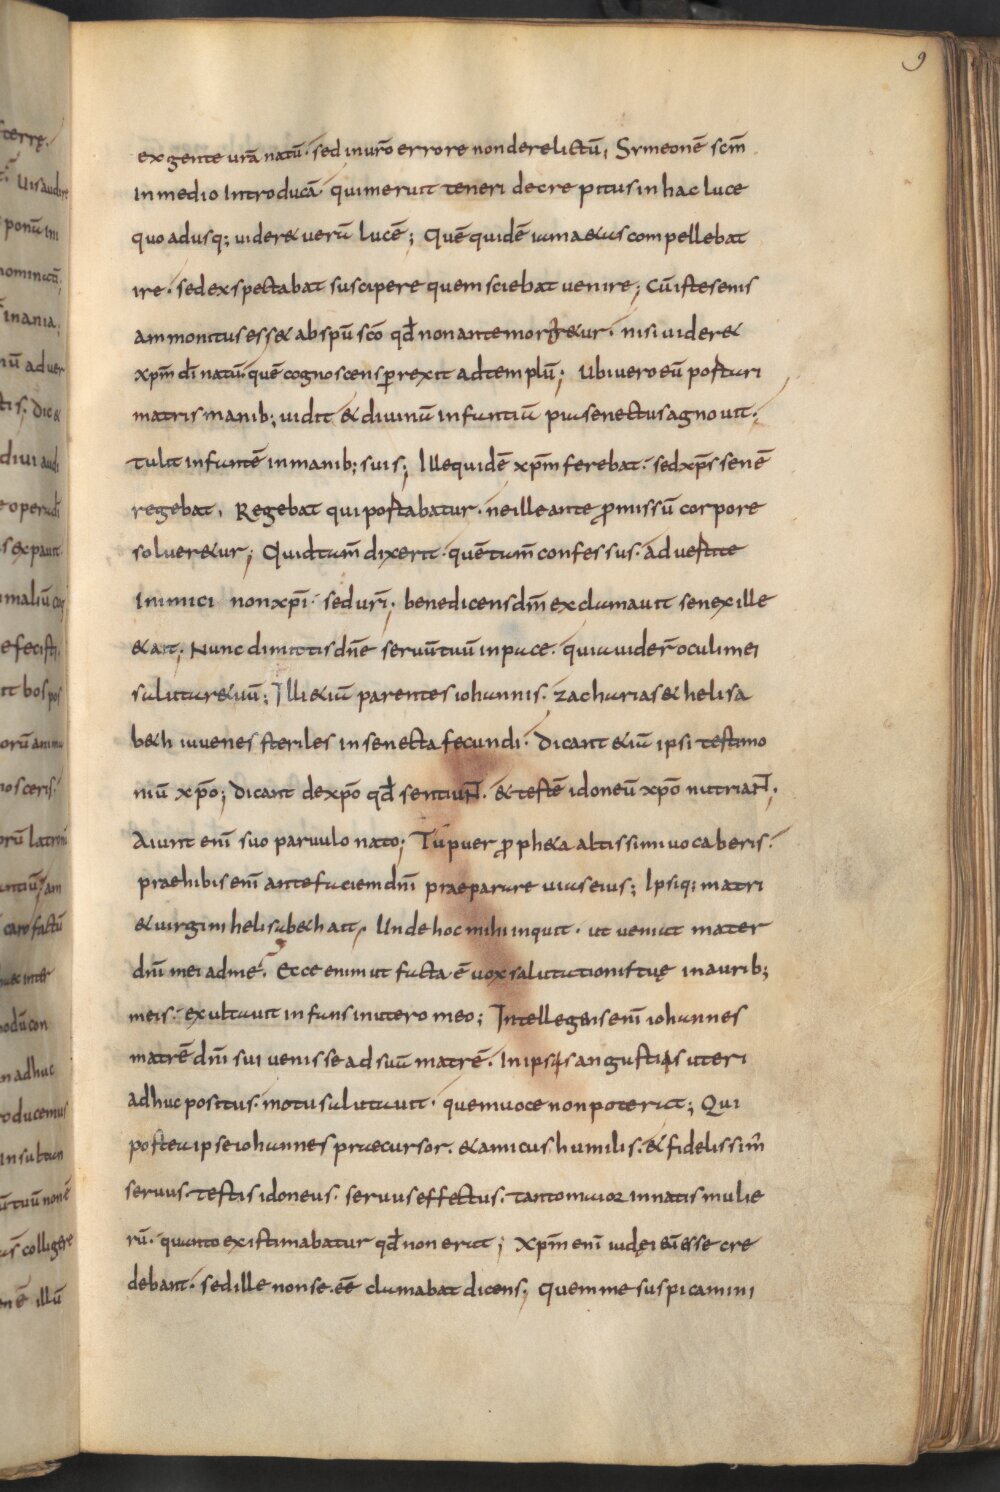 9
ex gente urā natū· sed in uro errore non derelictū; Symeonē scm̄
In medio Introducā· qui meruit teneri decrepitus in hac luce
quo adusq; uider& uerū lucē; Quē quidē iam a&as compellebat
ire· sed exspectabat suscipere quem sciebat uenire; Cū iste senis
ammonitus ess& ab spū scō qđ non ante morer&ur· nisi uider&
xpm̄ dn̄i natū· quē cognoscens perrexit ad templū; Ubi uero eū postari
matris manib; uidit & diuinū infantiū pia senectus agnouit·
tulit infantē in manib; suis; Ille quidē xpm̄ ferebat· sed xps̄ senē
regebat· Regebat qui postabatur· ne ille ante promissū corpore
soluer&ur; Quid tam̄ dixerit· quē tam̄ confessus· aduestite
Inimici non xpi· sed uri· benedicens dm̄ exclamauit senex ille
& ait; Nunc dimittis dn̄e seruū tuū in pace· quia uider̄ oculi mei
salutare tuū; Illi &iā parentes iohannis· zacharias & helisa
b&h iuuenes steriles in senecta fecundi· dicant &iā ipsi testimo
niū xp̄o; dicant de xp̄o qđ sentiuNt· & testē idoneū xp̄o nutriaNt;
Aiunt enī suo paruulo nato; Tu puer proph&a altissimi uocaberis·
praehibis enī ante faciem dn̄i praeparare uias eius; Ipsiq; matri
& uirgini helisab&h ait; Unde hoc mihi inquit· ut ueniat mater
dn̄i mei ad me· Ecce enim ut facta· ē uox salutationis tuę in aurib;
meis· exultauit infans in utero meo; Intellegens enī iohannes
matrē dn̄i sui uenisse ad suā matrē· In ipsis angustiis uteri
adhuc positus· motu salutauit· quem uoce non poterat; Qui
postea ipse iohannes praecursor· & amicus humilis· & fidelissim̄
seruus· testis idoneus· seruus effectus· tanto maior in natis mulie
rū· quanto existimabatur qđ non erat; Xpm̄ enī iudęi eū esse cre
debant· sed ille non se· eē clamabat dicens; Quem me suspicamini